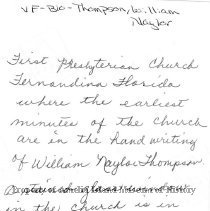 VF-Bio-Thompson, William
Naylor
First Presbyterian Church
Fernandina Florida
where the earliest
minutes of the church
are in the handwriting
of William Naylor Thompson
stained glass
in the church is in